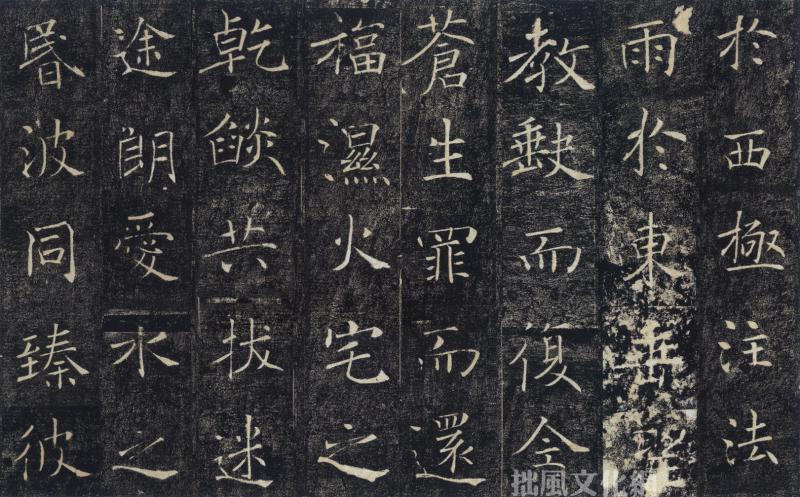 於西極注法
雨於東垂聖
教缺而復全
蒼生罪而還
福濕火宅之
乾燄共拔迷
途朗愛水之
昬波同臻彼
拙風文化網